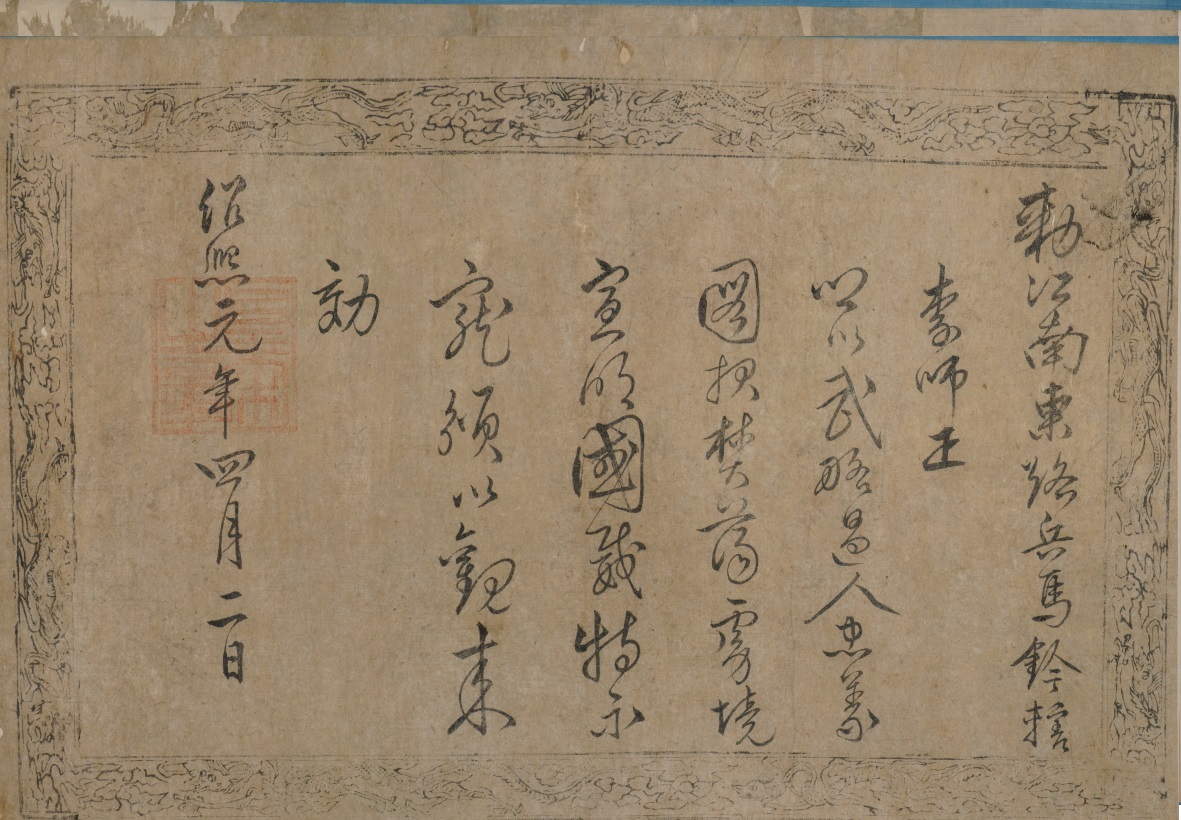 勅江南東路兵馬鈐轄
李師王
以武略過人忠義
國掃焚蕩虜境
宣明國威特示
寵頒以觀來
効
紹熙元年四月二日